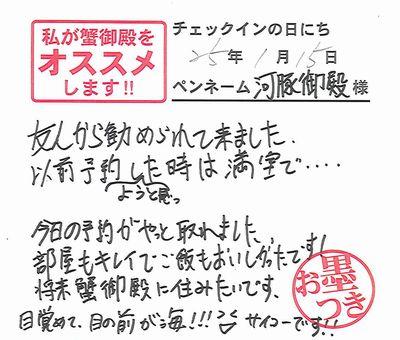 私が蟹御殿を
オススメ
します!!
チェックインの日にち
25年 1月 15日
ペンネーム 河豚御殿 様
友人から勧められて来ました.
以前予約した時は満室で・・・・
ようと思っ
今日の予約がやっと取れました、
部屋もキレイでご飯もおいしかったです!
将来蟹御殿に住みたいです、
目覚めて、目の前が海!!! サイコーです!!
お墨つき